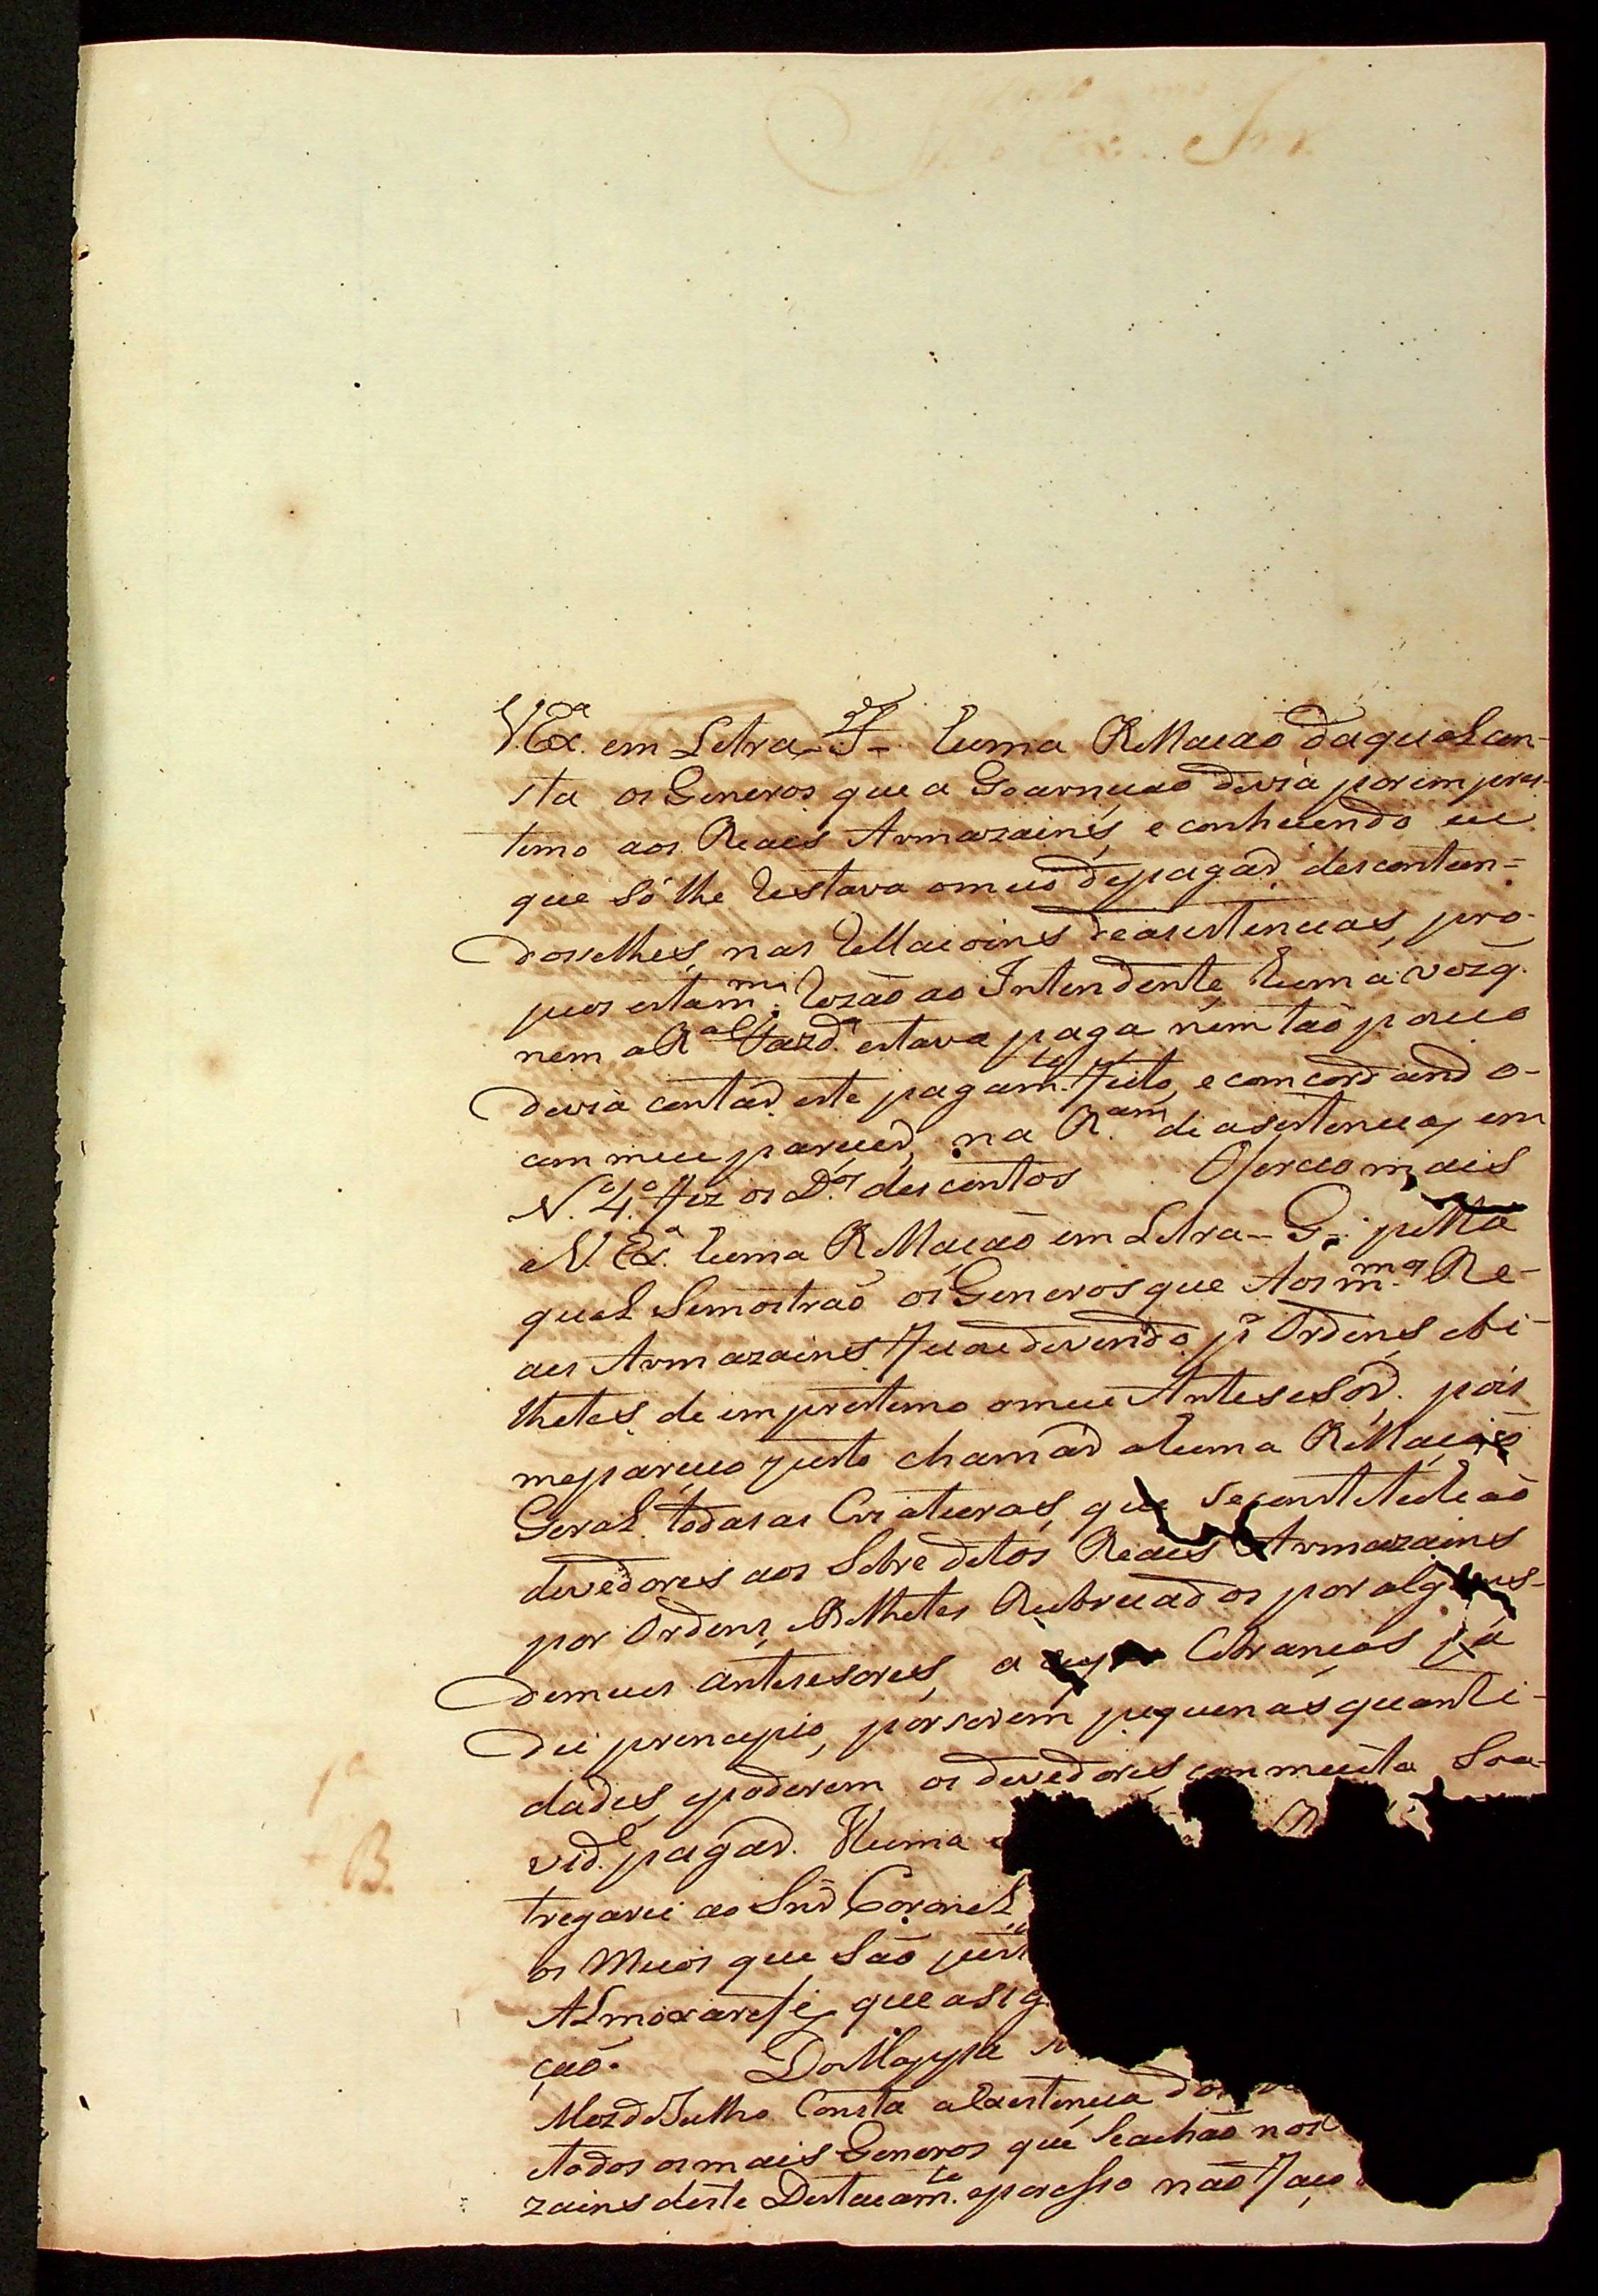 V. Exª em Letra - F - huma Rellacaõ daqual con-
sta os Generos que a Goarnicaõ devia por impres-
temo aos Reaes Armazains, e conhecendo eu
que só lhe restava o meio de pagar, descontan=
doselhes, nas rellacoins de asistencias, pro-
puz estam.mª rezaõ ao Intendente, huma vez q.
nem a R.al Fazd.ª estava paga nem taõ pouco
devia contar este pagam.to feito, e comcordando-
com meu parecer, na R.am de asistencia, em
N.º 4.º fiz os D.os descontos Ofereco mais
a V. Exª huma Rellacaõ em Letra - G - pella
qual Semostraõ os Generos que Aos m.mos Re-
aes Armazains ficae devendo pr Ordens, e bi-
lhetes de imprestemo o meu Antesesor, pois
mepareceo justo chamar a huma Rellaçaõ
Geral todas as Criaturas, que se constituhe aõ
devedores aos Sobre ditos Reaes Armazains
por Ordens, e Bilhetes Rubricados por alguns-
demeus antesesores, a cujas Cobrancas já
dei principio, por serem pequenas quanti-
dades, epoderem os devedores com muita Soa-
vid.e pagar. Huma
tregarei ao Snr Coronel
os Meios que saõ just
Almoxarife, que asig
çaõ. Do Mappa
Mez de Julho Consta a Existencia dos
etodos os mais Generos que se achaõ nos
zains deste Destacam.to e por esso naõ faço
1ª
B.